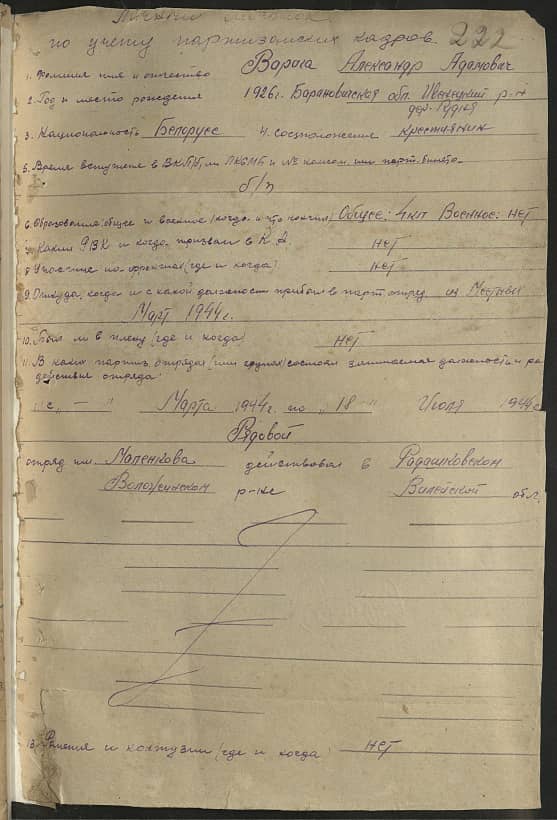 Личный листок
по учету партизанских кадров 222
1. Фамилия имя и отчество Варга Александр Адамович
2. Год и место рождения 1926г. Барановичская обл. Ивенецкий р-н
дер. Рудня
3. Национальность Белорусс 4. соцположение крестьянин
5. Время вступления в ВКП/б/ или ЛКСМБ и № комсом. или парт. билета
б/п
6. Образование: общее и военное (когда и что кончил) Общее: 4кл Военное: нет
7. Каким РВК и когда призван в К.А. нет
8. Участие на фронтах (где и когда) нет
9. Откуда, когда и с какой должности прибыл в парт. отряд из местных
Март 1944г.
10. Был ли в плену (где и когда) нет
11. В каких партиз. отрядах (или группах) состоял занимаемая должность и ра
действия отряда:
"с" — " Марта 1944г. по "18" Июля 1944г
Рядовой
отряд им. Маленкова действовал в Радашковском
Воложинском р-нс Вилейской обл.
13. Ранения и контузии (где и когда) нет